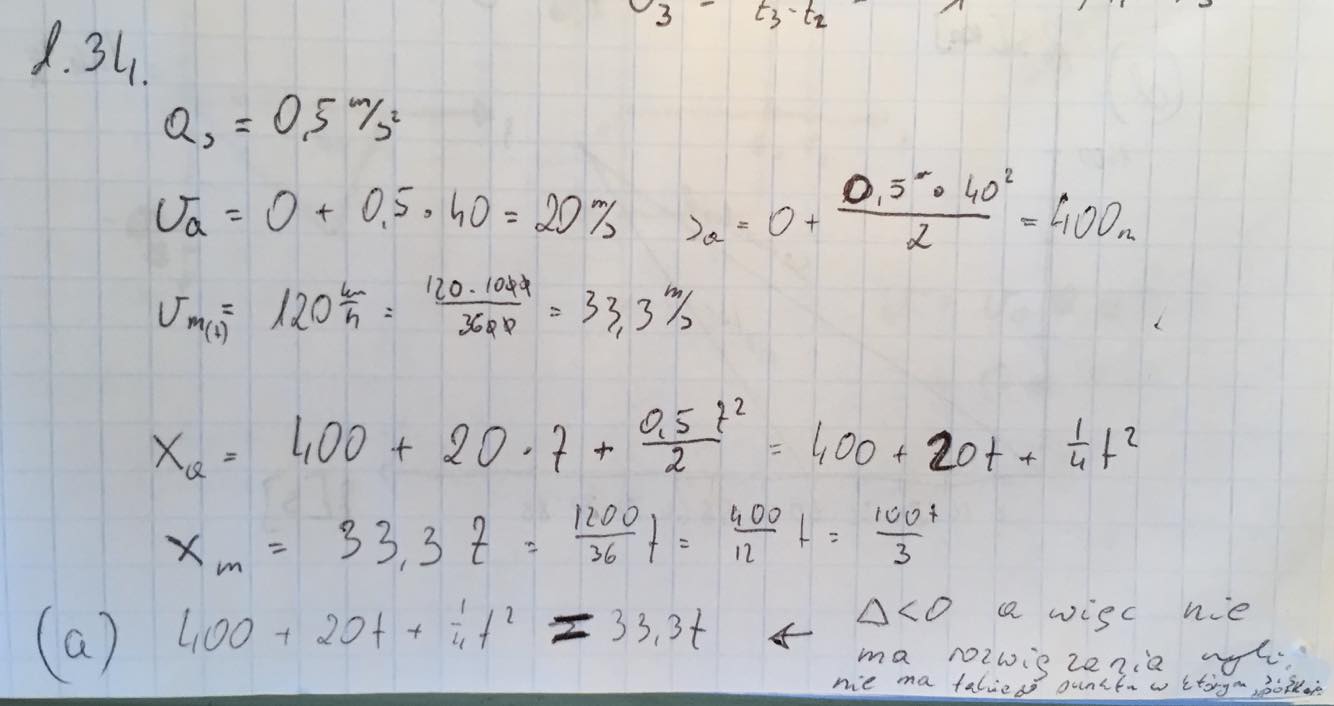 v₃ = t₃ - t₂ =
1.34.
a_s = 0,5 m/s²
v_a = 0 + 0,5 · 40 = 20 m/s s_a = 0 + 0,5 · 40² / 2 = 400m
v_m(t) = 120 km/h = 120 · 1000 / 3600 = 33,3 m/s
x_a = 400 + 20 · t + 0,5 t² / 2 = 400 + 20t + 1/4 t²
x_m = 33,3 t = 1200/36 t = 400/12 t = 100t/3
(a) 400 + 20t + 1/4 t² = 33,3t ← Δ<0 a więc nie
ma rozwiązania czyli
nie ma takiego punktu w którym się